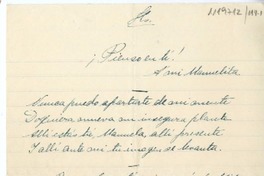 ¡Pienso en ti!
A mi Manuelita.
Nunca puedo apartarte de mi mente
Doquiera mueva mi insegura planta
Allí estás tú, Manuela, allí presente
I allí ante mi tu imagen se levanta